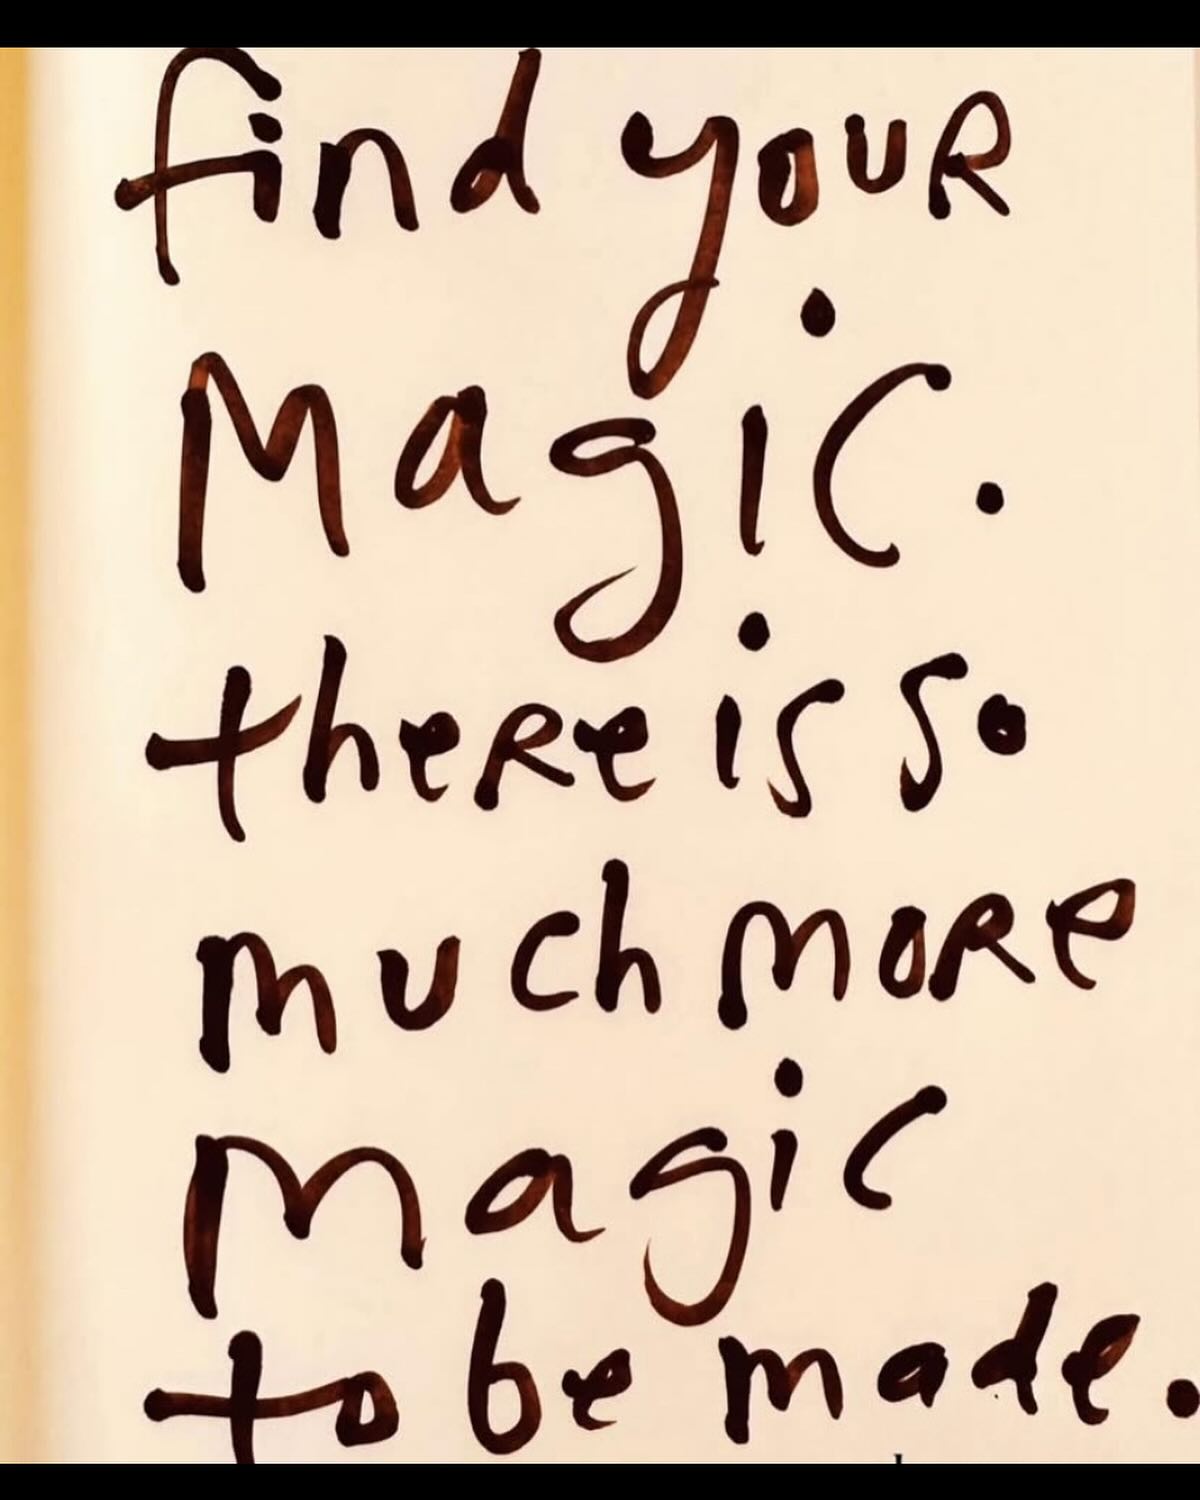 find youR
Magic.
theRe is so
much moRe
magic
to be made.